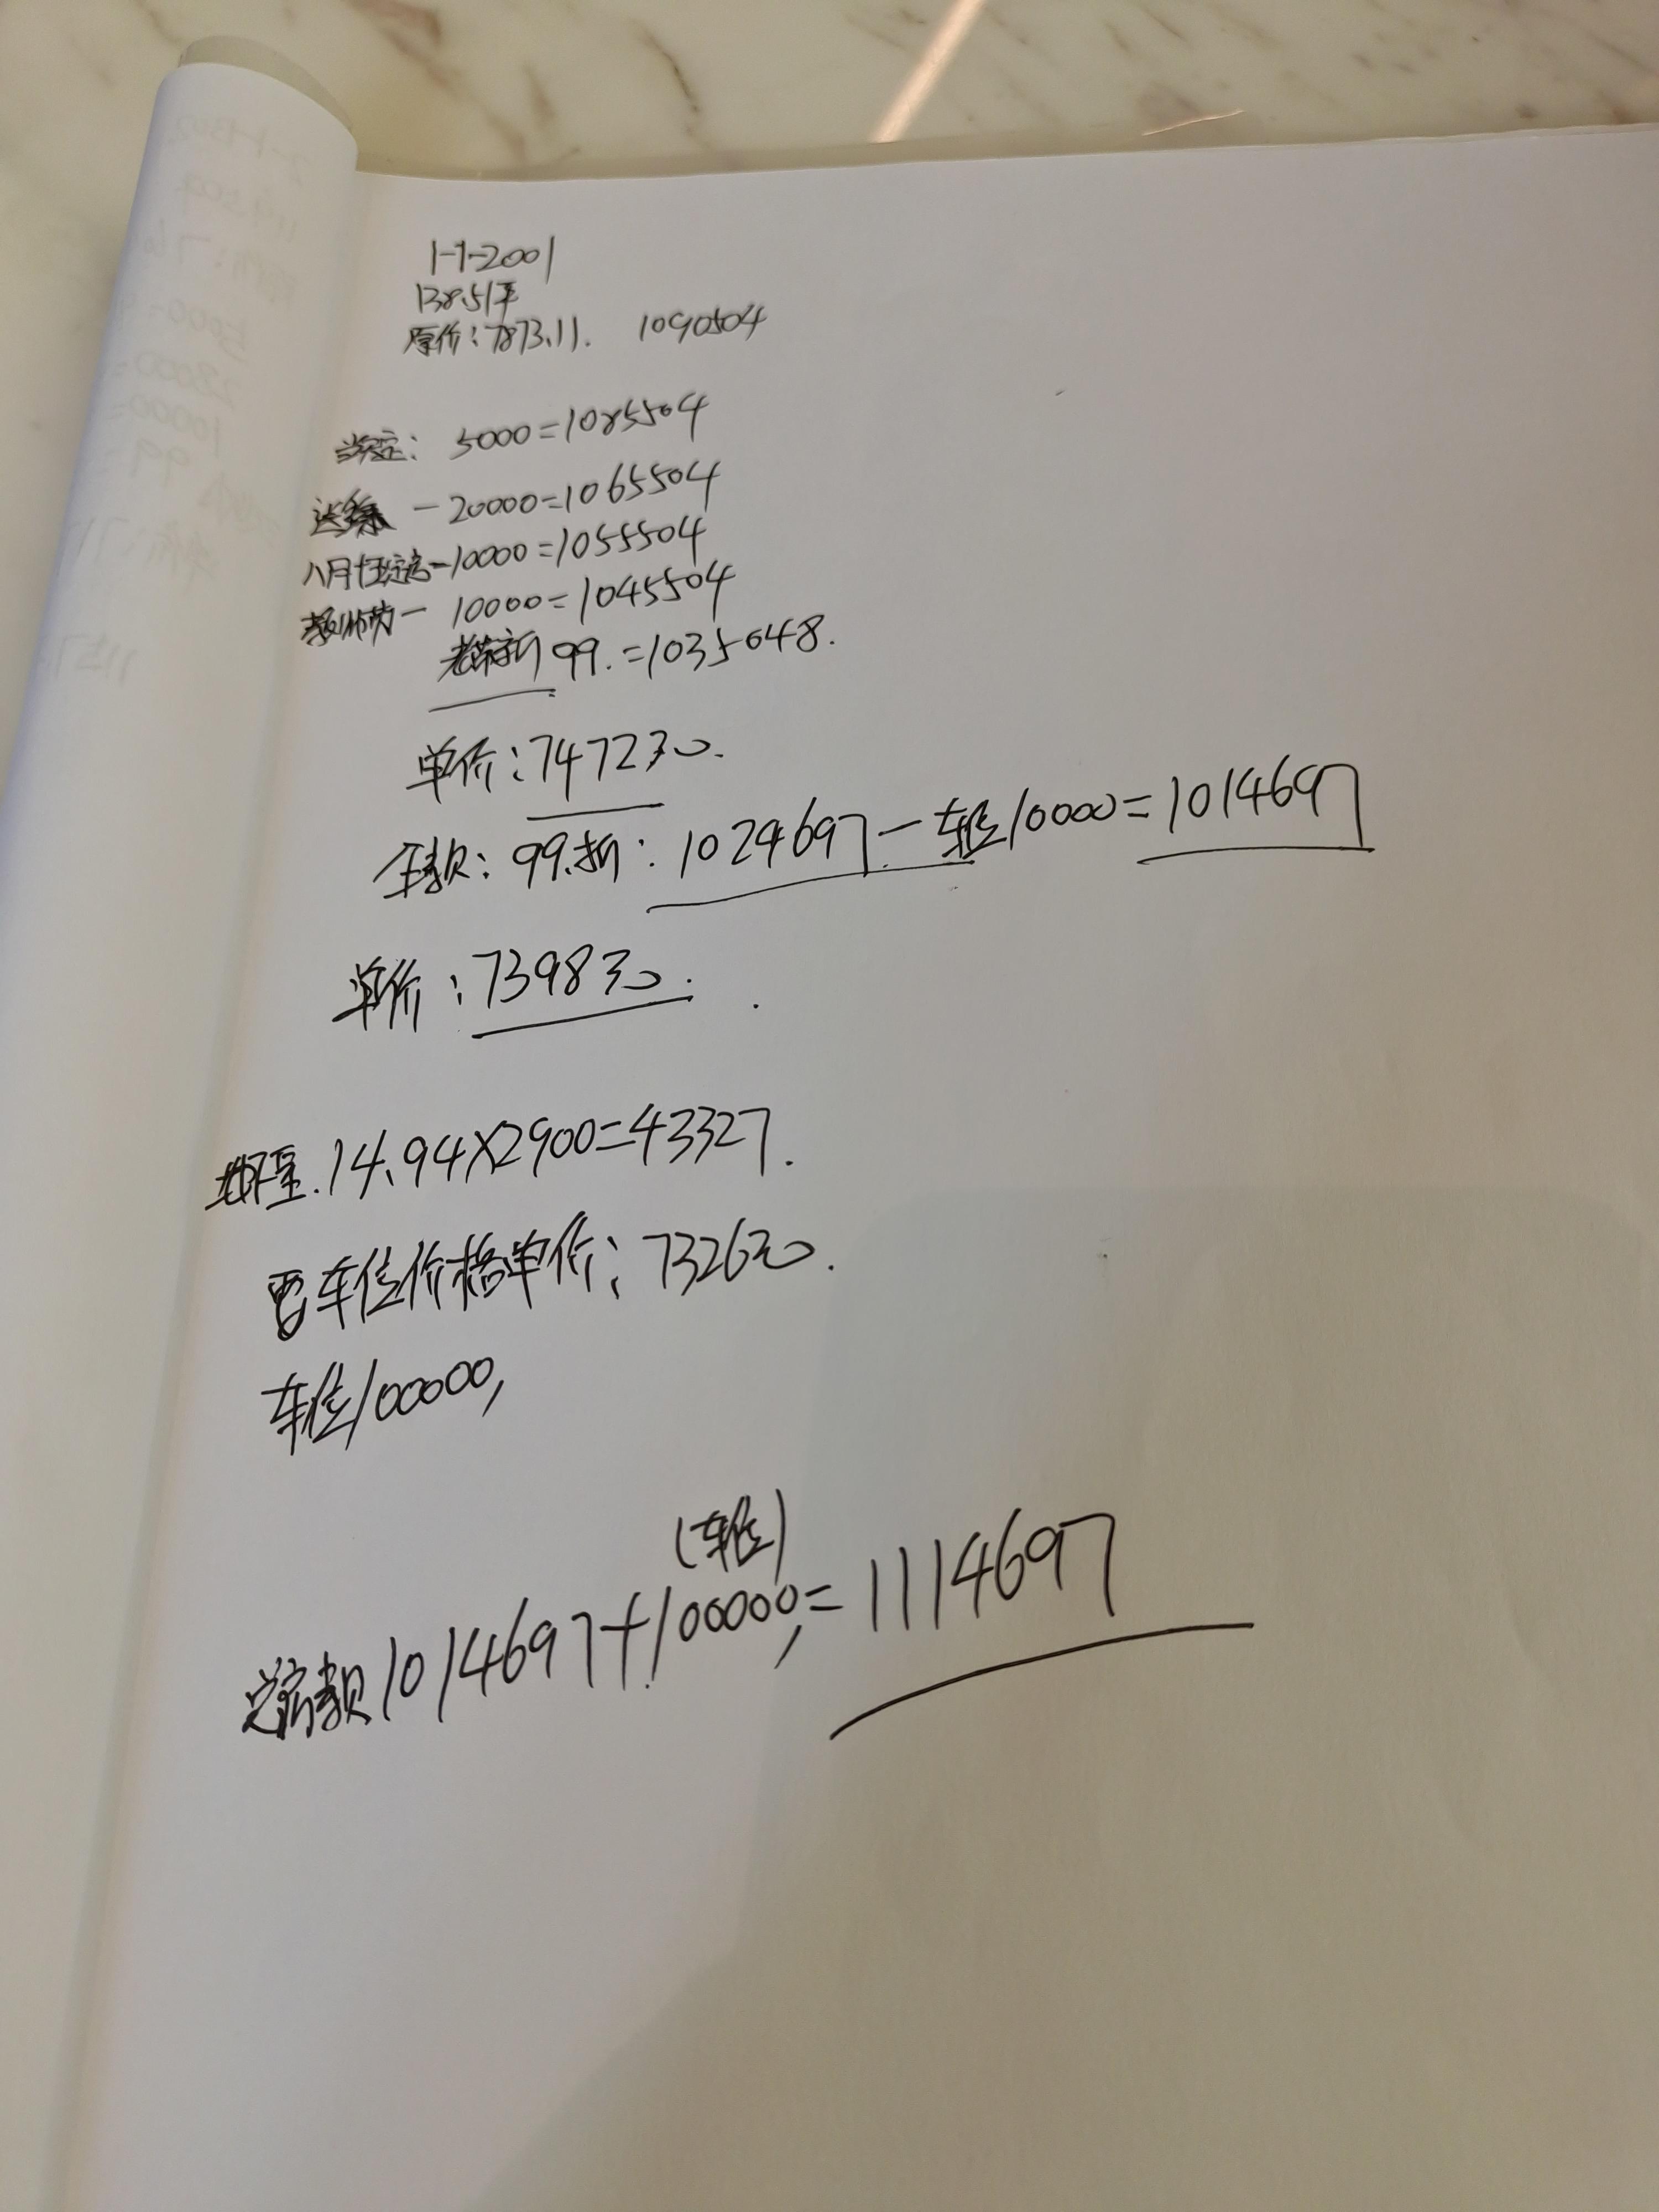 1-1-2001
138.51平
原价：7873.11. 1090504
当天定： 5000=1085504
-20000=1065504
八月 -10000=1055504
教师节- 10000=1045504
老带新 99.=1035048.
单价：7472元.
全款：99.折：1024697-车位10000=1014697
单价：7398元.
地下室.14.94X2900=43327.
车位价格单价：7326元.
车位100000,
(车位)
总房款1014697+100000,=1114697